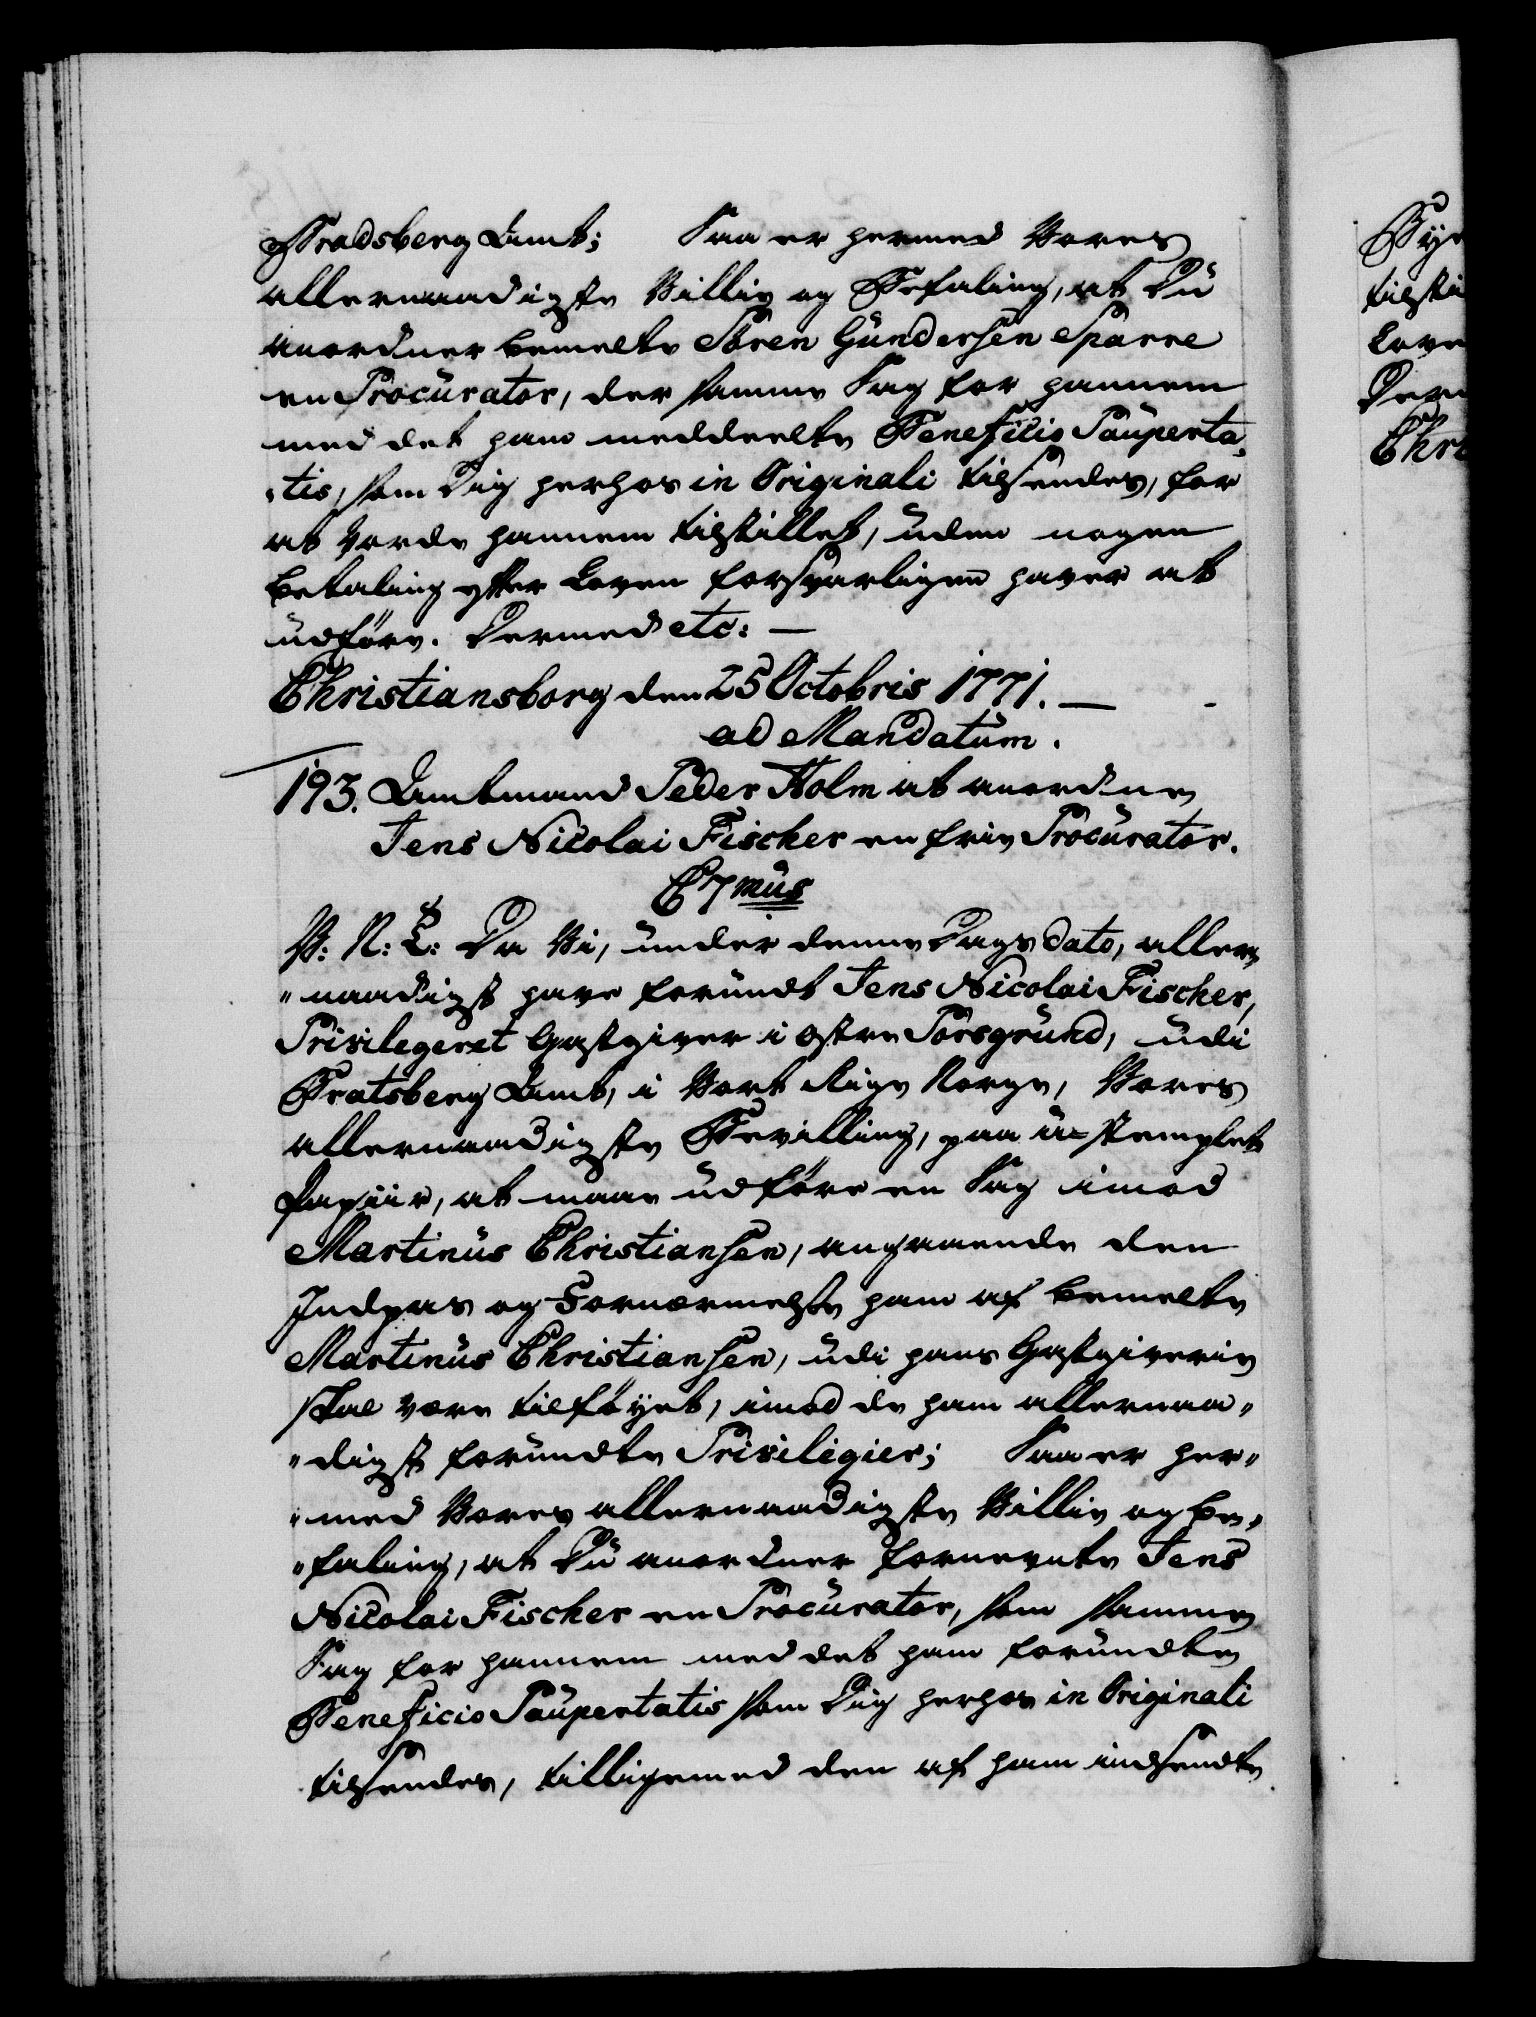 Bradsberg Lamt; Saa er hermed Vores
allernaadigste Villie og Befaling, at Du
anordner bemelte Sören Gundersen Sparre
en Procurator, der samme Sag for hannem
med det ham meddeelte Beneficio Pauperta„
„tis, som Dig herhos in Originali tilsendes, for
at vorde hannem tilstillet, uden nogen
betaling efter Loven forsvarligen haver at
udföre. Dermed etc: —
Christiansborg den 25 Octobris 1771. —
ad Mandatum.
193. Amtmand Peder Holm at anordne
Jens Nicolai Fischer en frie Procurator.
C 7mus
V: N: L: Da Vi, under denne Dags Dato, aller„
„naadigst have forundt Jens Nicolai Fischer,
Privilegeret Gastgiver i Østre Porsgrund, udi
Bratsberg Amt, i Vort Rige Norge, Vores
allernaadigste Bevilling, paa u-stemplet
Papiir, at maae udföre en Sag imod
Martinus Christiansen, angaaende den
Indpas og Fornærmelse ham af bemelte
Martinus Christiansen, udi hans Gastgiverie
skal være tilföyet, imod de ham allernaa„
„digst forundte Privilegier; Saa er her„
„med Vores allernaadigste Villie og Be„
„faling, at Du anordner fornevnte Jens
Nicolai Fischer en Procurator, som samme
Sag for hannem med det ham forundte
Beneficio Paupertatis som Dig herhos in Originali
tilsendes, tilligemed den af ham indsendte